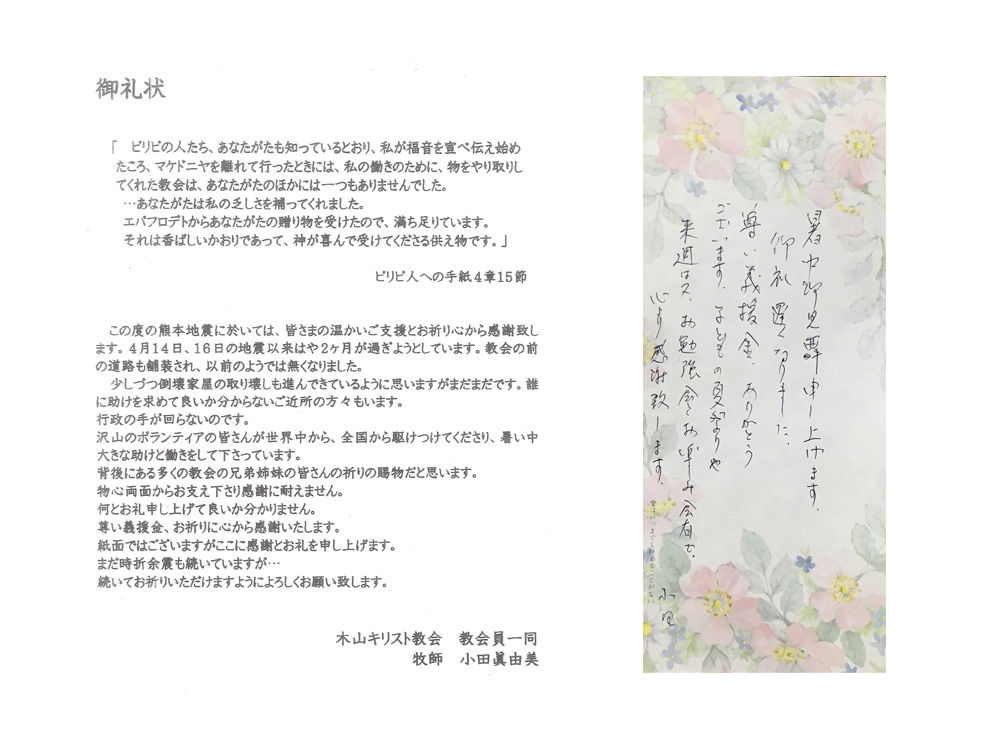 御礼状
「　ピリピの人たち、あなたがたも知っているとおり、私が福音を宣べ伝え始め
たころ、マケドニヤを離れて行ったときには、私の働きのために、物をやり取りし
てくれた教会は、あなたがたのほかには一つもありませんでした。
…あなたがたは私の乏しさを補ってくれました。
エパフロデトからあなたがたの贈り物を受けたので、満ち足りています。
それは香ばしいかおりであって、神が喜んで受けてくださる供え物です。」
ピリピ人への手紙4章15節
この度の熊本地震に於いては、皆さまの温かいご支援とお祈り心から感謝致し
ます。4月14日、16日の地震以来はや2ヶ月が過ぎようとしています。教会の前
の道路も舗装され、以前のようでは無くなりました。
少しづつ倒壊家屋の取り壊しも進んできているように思いますがまだまだです。誰
に助けを求めて良いか分からないご近所の方々もいます。
行政の手が回らないのです。
沢山のボランティアの皆さんが世界中から、全国から駆けつけてくださり、暑い中
大きな助けと働きをして下さっています。
背後にある多くの教会の兄弟姉妹の皆さんの祈りの賜物だと思います。
物心両面からお支え下さり感謝に耐えません。
何とお礼申し上げて良いか分かりません。
尊い義援金、お祈りに心から感謝いたします。
紙面ではございますがここに感謝とお礼を申し上げます。
まだ時折余震も続いていますが…
続いてお祈りいただけますようによろしくお願い致します。
木山キリスト教会　教会員一同
牧師　小田眞由美
暑中御見舞申し上げます。
御礼遅くなりました。
尊い義援金、ありがとう
ございます。子どもの夏祭りや
来週はお勉強会とお楽しみ会有で、
心より感謝致します。
小田